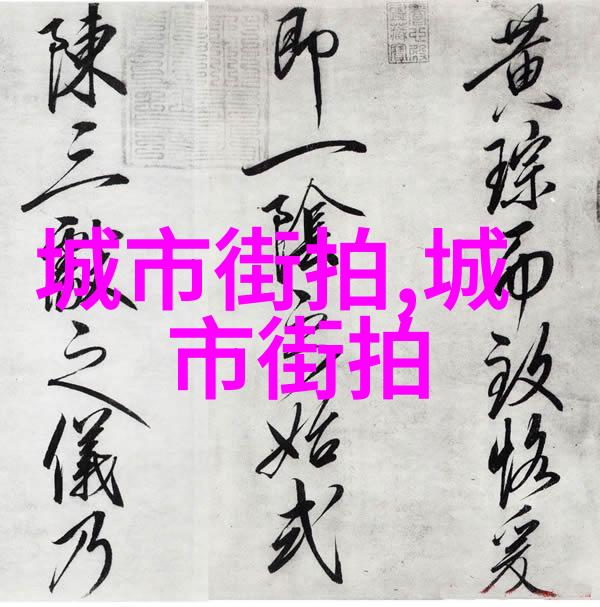 城市街拍,城
市街拍
黄琮而致恪爰
即一陰始式
陳三獻之儀乃